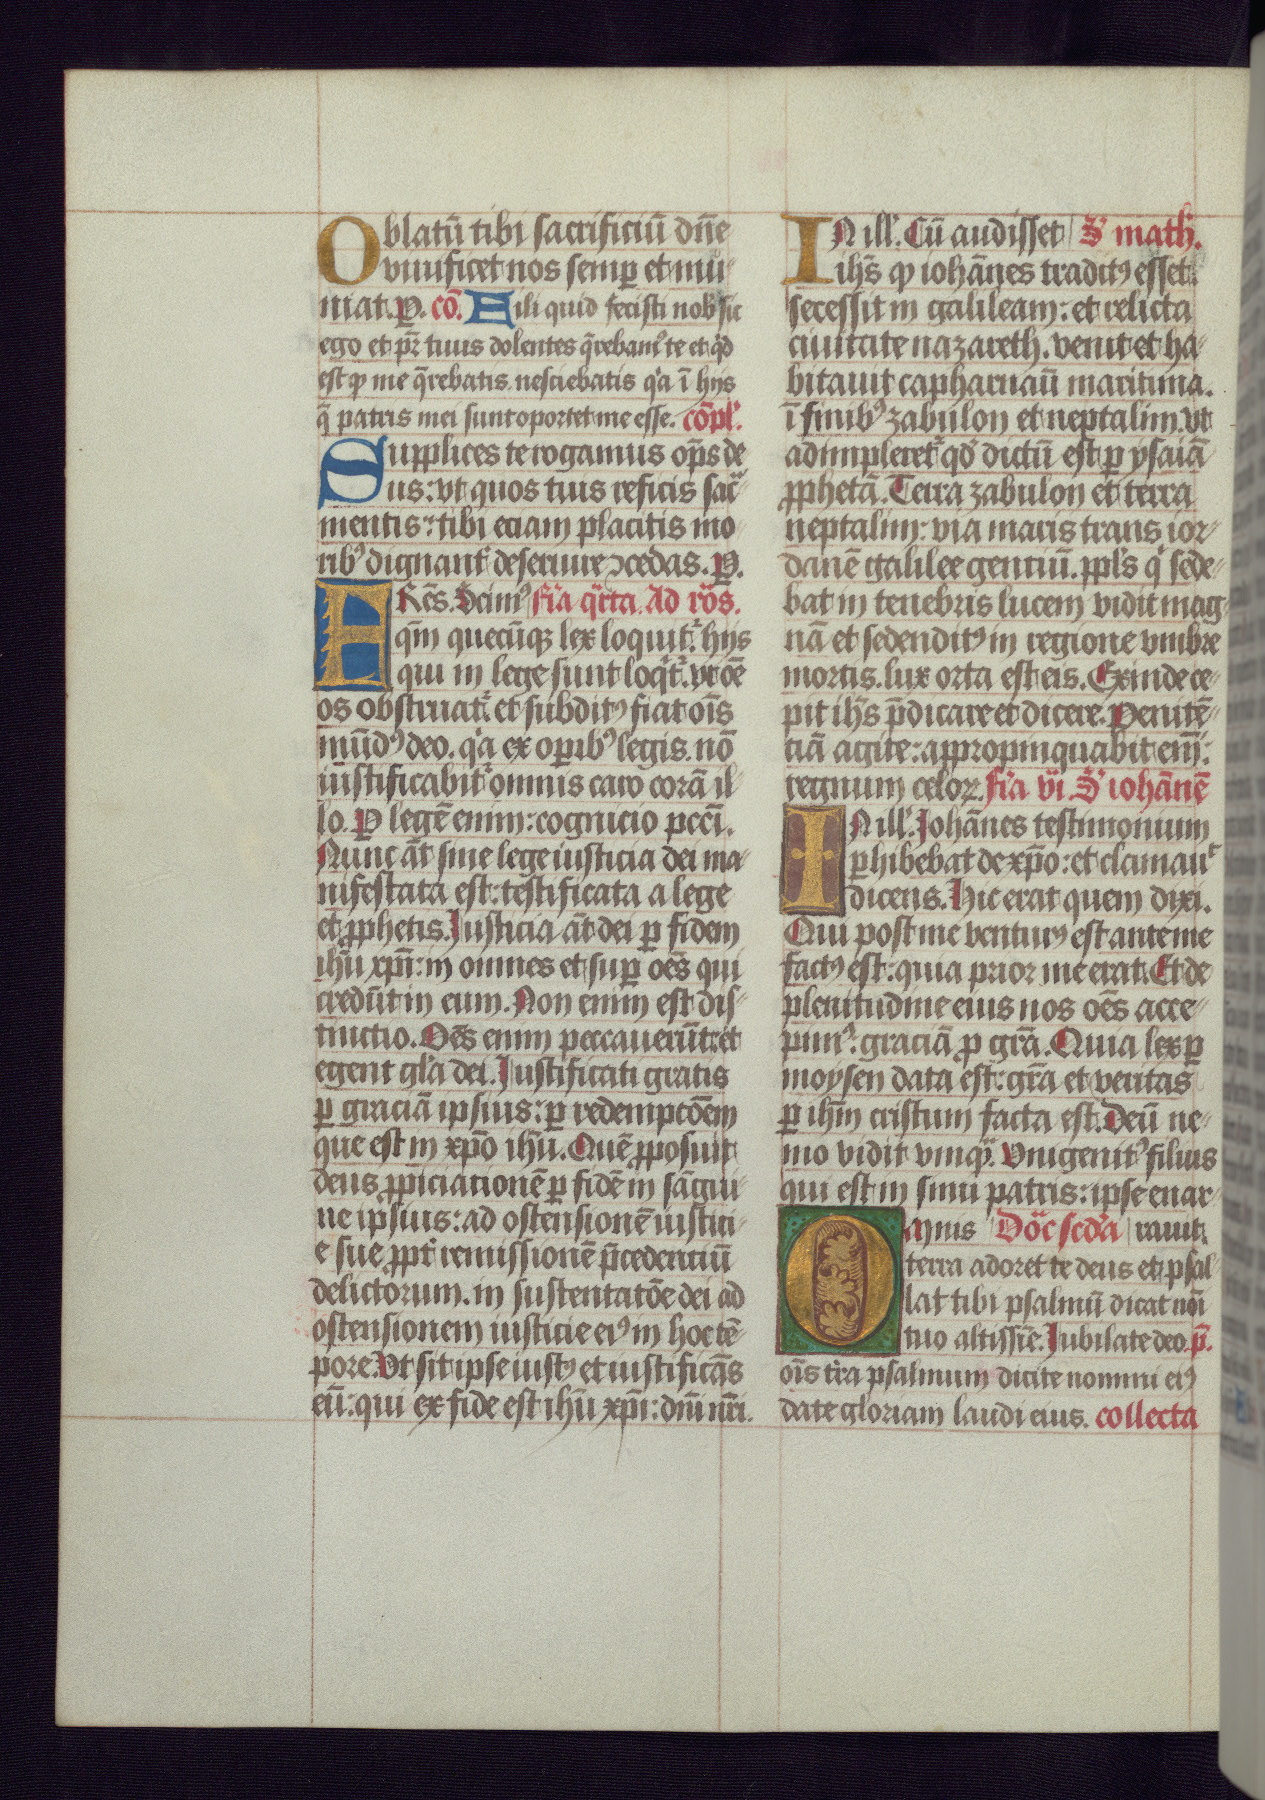 Oblatū tibi sacrificiū dn̄e
viuificet nos semp̱ et mu-
niat. P̱. cō. Fili quid fecisti nob̾ sic
ego et pr̄ tuus dolentes q̄rebamꝰ te et q̇d
est ꝙ me q̄rebatis nesciebatis q̇a ī hijs
q̄ patris mei sunt oportet me esse. cōpl̾.
Supplices te rogamus op̄s de
us: vt quos tuis reficis sac̄-
mentis: tibi eciam placitis mo-
ribꝰ dignant̾ deseruire ꝯcedas. P̱.
FRēs. Scimꝰ fr̄ia q̄rta. Ad rōs.
qm̄ quecūqꝫ lex loquit̾: hijs
qui in lege sunt loq̇t̾. vt oē
os obstruat̾: et subditꝰ fiat oīs
mūdꝰ deo. q̇a ex op̱ibꝰ legis. nō
iustificabit̾ omnis caro corā il-
lo. P̱ legē enim: cognicio pcc̄i.
Nunc āt sine lege iusticia dei ma-
nifestata est: testificata a lege
et ꝓphetis. Iusticia āt dei p̱ fidem
ihū xp̄i: in omnes et sup̱ oēs qui
credūt in eum. Non enim est dis-
tinctio. Oēs enim peccauerūt: et
egent gl̄a dei. Iustificati gratis
p̱ graciā ipsius: p̱ redempcōem
que est in xp̄o ihū. Quē ꝓposuit
deus ꝓpiciationē p̱ fidē in sāgui-
ne ipsius: ad ostensionē iustici-
e sue ꝓpt̾ remissionē p̄cedentiū
delictorum. in sustentatōe dei ad
ostensionem iusticie eiꝰ in hoc tē-
pore. Vt sit ipse iustꝰ et iustificās
eū: qui ex fide est ihū xp̄i: dn̄i nr̄i.
IN ill̾. Cū audisset S̾ math̾.
ihs̄ ꝙ iohānes traditꝰ esset:
secessit in galileam: et relicta
ciuitate nazareth. venit et ha-
bitauit capharnaū maritima.
ī finibꝰ zabulon et neptalim. vt
adimpleret̾ qd̾ dictū est p̱ ysaiā
ꝓphetā. Terra zabulon et terra
neptalim: via maris trans ior-
danē galilee gentiū. ppl̄s q̇ sede-
bat in tenebris lucem vidit mag-
nā et sedenditꝰ in regione vmbre
mortis. lux orta est eis. Exinde ce-
pit ihs̄ p̄dicare et dicere. Penitē-
tiā agite: appropinquabit em̄:
regnum celoꝝ. fr̄ia vi. S̾ iohānē
IN ill̾. Iohānes testimonium
p̱hibebat de xp̄o: et clamaut̾
dicens. Hic erat quem dixi.
Qui post me venturꝰ est ante me
factꝰ est: quia prior me erat. Et de
plenitudine eius nos oēs acce-
pimꝰ: graciā ꝓ grā. Quia lex p̱
moysen data est: grā et veritas
p̱ ihm̄ cristum facta est. Deū ne-
mo vidit vmq̄. Vnigenitꝰ filius
qui est in sinu patris: ipse enar-
Omnis Dōc scd̄a rauit.
terra adoret te deus et psal-
lat tibi psalmū dicat noī
tuo altissīe. Iubilate deo. p̄.
oīs tr̄a psalmum dicite nomini eiꝰ
date gloriam laudi eius. collecta